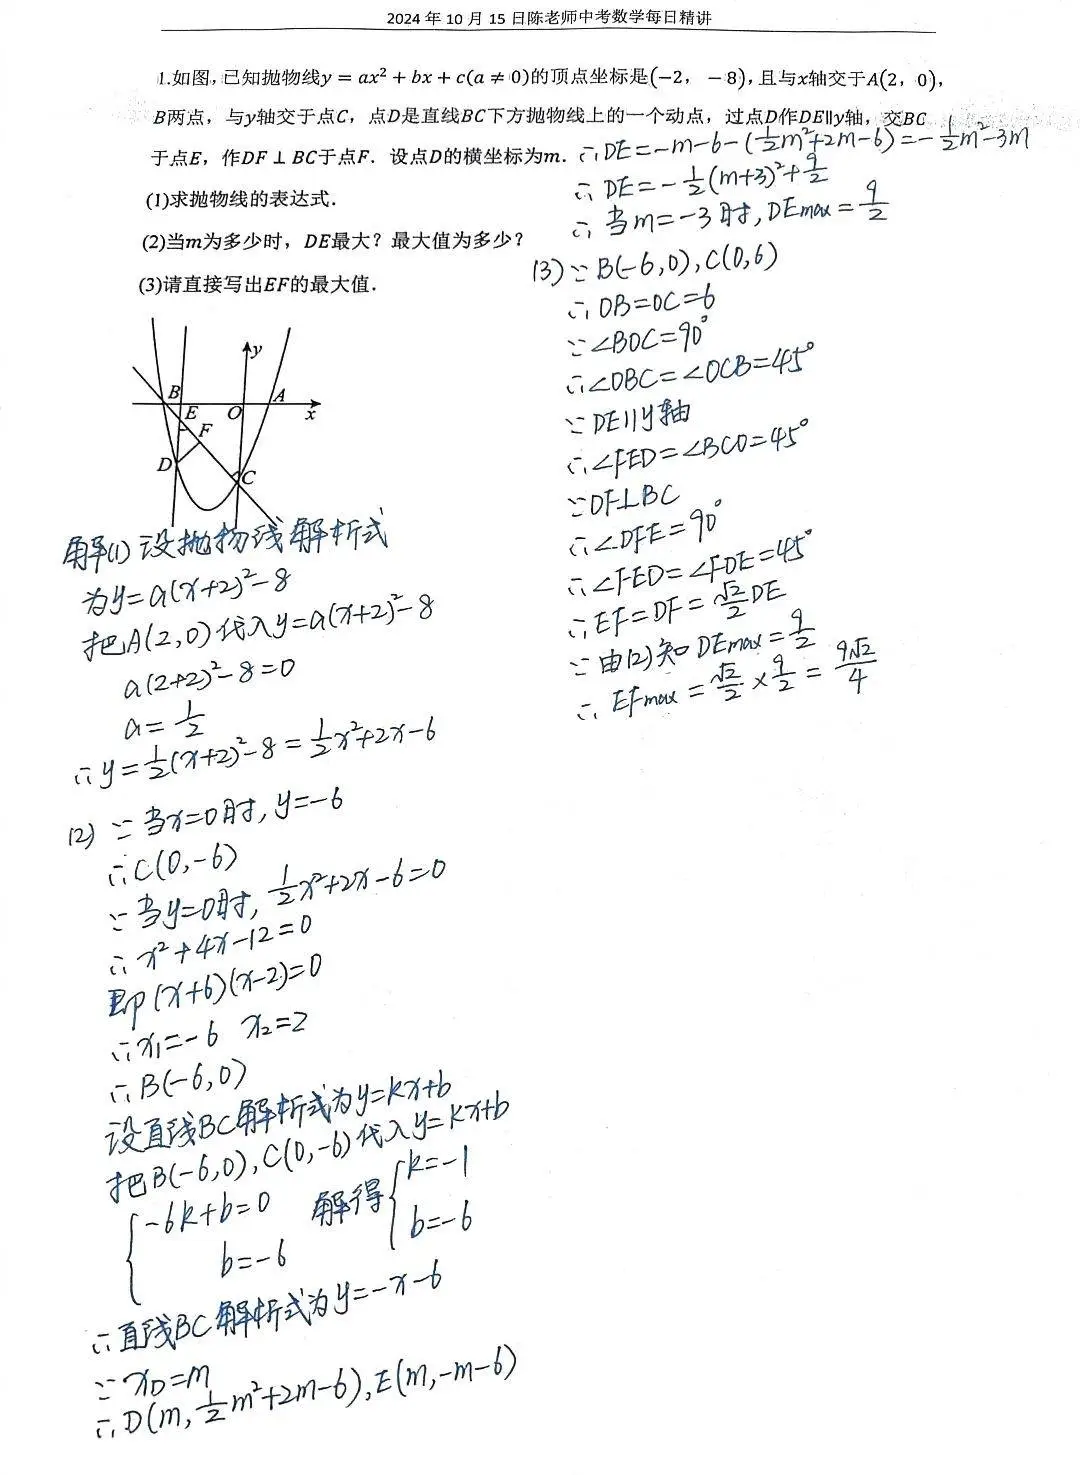 2024年10月15日陈老师中考数学每日精讲
1.如图,已知抛物线y = ax² + bx + c(a ≠ 0)的顶点坐标是(−2, −8),且与x轴交于A(2, 0),
B两点,与y轴交于点C,点D是直线BC下方抛物线上的一个动点,过点D作DE∥y轴,交BC
于点E,作DF ⊥ BC于点F. 设点D的横坐标为m.
(1)求抛物线的表达式.
(2)当m为多少时,DE最大?最大值为多少?
(3)请直接写出EF的最大值.
y
B
A
E
O
x
F
D
C
解(1) 设抛物线解析式
为y=a(x+2)²-8
把A(2,0)代入y=a(x+2)²-8
a(2+2)²-8=0
a=1/2
∴y=1/2(x+2)²-8=1/2x²+2x-6
(2) ∵当x=0时,y=-6
∴C(0,-6)
∵当y=0时,1/2x²+2x-6=0
∴x²+4x-12=0
即(x+6)(x-2)=0
∴x₁=-6 x₂=2
∴B(-6,0)
设直线BC解析式为y=kx+b
把B(-6,0),C(0,-6)代入y=kx+b
{-6k+b=0 解得{k=-1
b=-6 b=-6
∴直线BC解析式为y=-x-6
∵x_D=m
∴D(m,1/2m²+2m-6),E(m,-m-6)
∴DE=-m-6-(1/2m²+2m-6)=-1/2m²-3m
∴DE=-1/2(m+3)²+9/2
∴当m=-3时,DEmax=9/2
(3)∵B(-6,0),C(0,6)
∴OB=OC=6
∵∠BOC=90°
∴∠OBC=∠OCB=45°
∵DE∥y轴
∴∠FED=∠BCO=45°
∵DF⊥BC
∴∠DFE=90°
∴∠FED=∠FDE=45°
∴EF=DF=√2/2DE
∵由(2)知DEmax=9/2
∴EFmax=√2/2×9/2=9√2/4